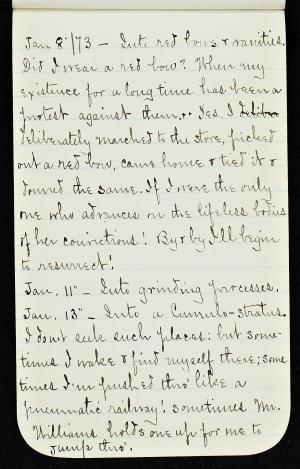 Jan 8"/73 – Into red bows & vanities.
Did I wear a red bow? When my
existence for a long time has been a
protest against them.. Yes. I deliber
deliberately marched to the store, picked
out a red bow, came home & tied it &
donned the same. If I were the only
one who advances on the lifeless bodies
of her convictions! By & by I'll begin
to resurrect!
Jan. 11" – Into grinding processes.
Jan. 13" – Into a Cumulo-stratus.
I don't seek such places: but some-
times I wake & find myself there; some
times I'm pushed thro' like a
pneumatic railway! sometimes Mr.
Williams holds one up for me to
jump thro'.